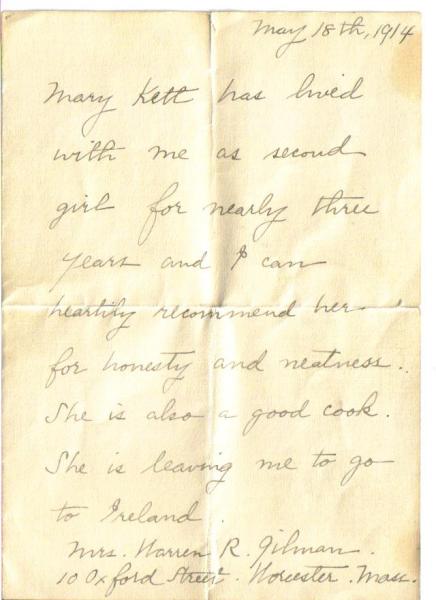 May 18th, 1914
Mary Kett has lived
with me as second
girl for nearly three
years and I can
heartily recommend her
for honesty and neatness.
She is also a good cook.
She is leaving me to go
to Ireland.
Mrs. Warren R. Gilman.
10 Oxford Street. Worcester. Mass.